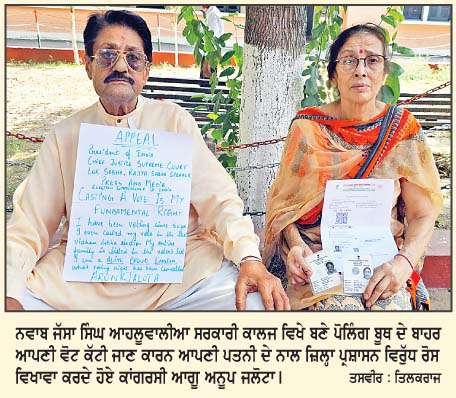 APPEAL
President of India
CHIEF JUSTICE SUPREME COURT
LOK SABHA, RAJYA SABHA SPEAKER
PRESS AND MEDIA
ELECTION COMMISSIONER OF INDIA
CASTING A VOTE IS MY
FUNDAMENTAL RIGHT
I have been voting since
I even casted my vote in the last
Vidhan Sabha election My entire
family is listed in the voter's list
I am a ALIVE
voting right has been cancelled
ਨਵਾਬ ਜੱਸਾ ਸਿੰਘ ਆਹਲੂਵਾਲੀਆ ਸਰਕਾਰੀ ਕਾਲਜ ਵਿਖੇ ਬਣੇ ਪੋਲਿੰਗ ਬੂਥ ਦੇ ਬਾਹਰ
ਆਪਣੀ ਵੋਟ ਕੱਟੀ ਜਾਣ ਕਾਰਨ ਆਪਣੀ ਪਤਨੀ ਦੇ ਨਾਲ ਜ਼ਿਲ੍ਹਾ ਪ੍ਰਸ਼ਾਸਨ ਵਿਰੁੱਧ ਰੋਸ
ਵਿਖਾਵਾ ਕਰਦੇ ਹੋਏ ਕਾਂਗਰਸੀ ਆਗੂ ਅਨੂਪ ਜਲੋਟਾ।
ਤਸਵੀਰ : ਤਿਲਕਰਾਜ